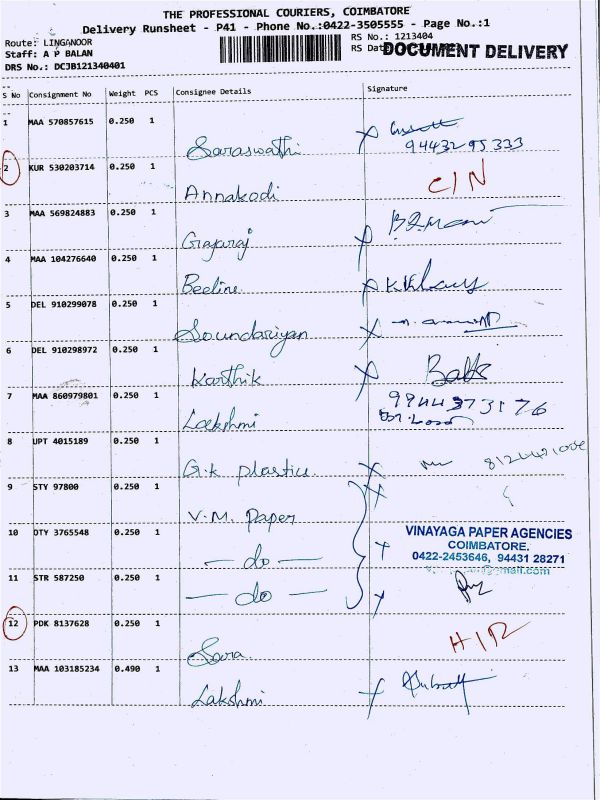 THE PROFESSIONAL COURIERS, COIMBATORE
Delivery Runsheet - P41 - Phone No.:0422-3505555 - Page No.:1
Route: LINGANOOR
Staff: A P BALAN
DRS No.: DCJB121340401
RS No.: 1213404
RS Dat
DOCUMENT DELIVERY
S No Consignment No Weight PCS Consignee Details Signature
1 MAA 570857615 0.250 1
Saraswathi 94432 95333
2 KUR 530203714 0.250 1
Annakodi C/N
3 MAA 569824883 0.250 1
Gajaraj
4 MAA 104276640 0.250 1
Beeline
5 DEL 910299078 0.250 1
Soundariyan
6 DEL 910298972 0.250 1
Karthik
7 MAA 860979801 0.250 1
Lakshmi
8 UPT 4015189 0.250 1
G.K plastics
9 STY 97800 0.250 1
V.M. Paper
10 OTY 3765548 0.250 1
— do —
VINAYAGA PAPER AGENCIES
COIMBATORE.
0422-2453646, 94431 28271
11 STR 587250 0.250 1
— do —
12 PDK 8137628 0.250 1
H/R
13 MAA 103185234 0.490 1
Lakshmi